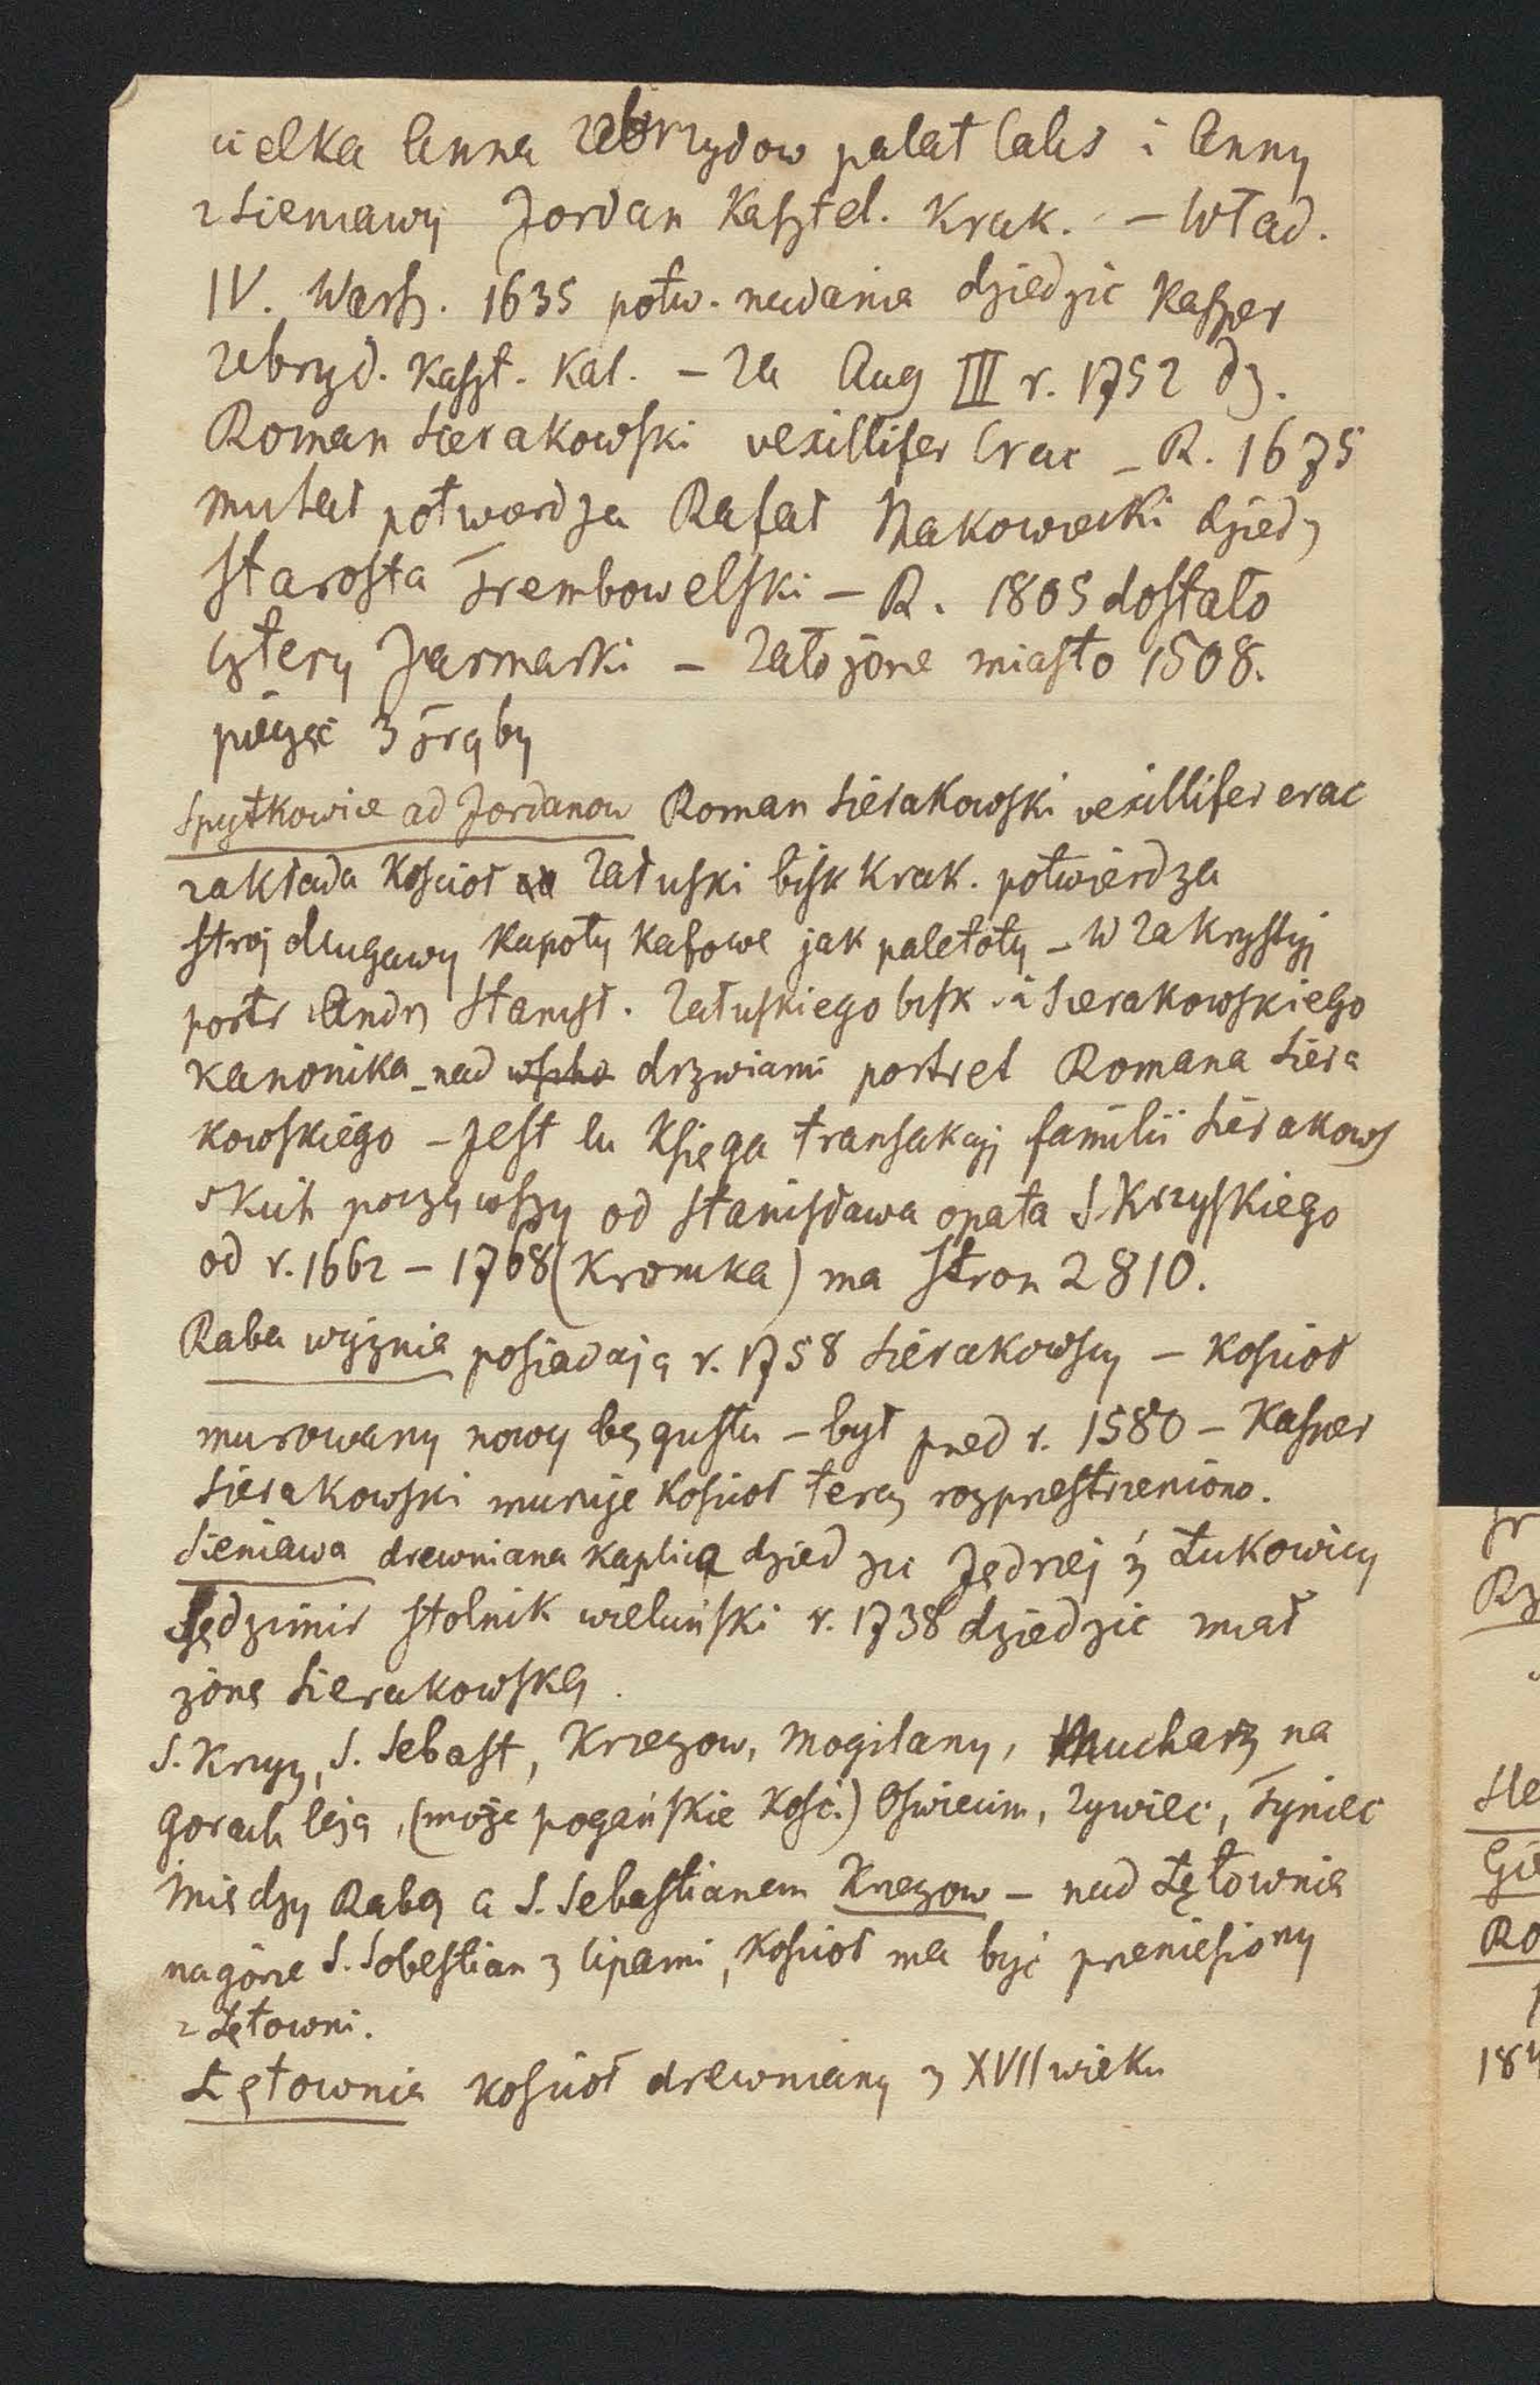 cielka Anna Zebrzydow palat Calis i Anny
z Sieniawy Jordan Kasztel. Krak. – Wład.
IV. Warsz. 1635 potw. nadania dziedzic Kasper
Zebrzyd. Kaszt. Kal. – Za Aug III r. 1752 dz.
Roman Sierakowski vexillifer Crac – R. 1675
potwierdza Rafał Makowiecki dziedz
starosta Trembowelski – R. 1805 dostało
cztery Jarmarki – Założone miasto 1508.
pieczęć 3 trąby
Spytkowice ad Jordanow Roman Sierakowski vexillifer crac
zakłada kościoł Załuski bisk Krak. potwierdza
stroj długawy kapoty kafowe jak paletoty – W zakrystyj
portr Andrz Stanisł. Załuskiego bisk. i Sierakowskiego
kanonika – nad drzwiami portret Romana Siera
kowskiego – Jest tu Księga transakcyj familii Sierakows
skich począwszy od Stanisława opata S. Krzyskiego
od r. 1662 – 1768 (Kronika) ma stron 2810.
Raba wyżnia posiadają r. 1758 Sierakowscy – kościoł
murowany nowy bez gustu – był przed r. 1580 – Kasper
Sierakowski muruje kościoł teraz rozprzestrzeniono.
Sieniawa drewniana kaplica dziedzic Jędrzej z Łukowicy
Sędzimir stolnik wieluński r. 1738 dziedzic miał
żonę Sierakowską.
S. Krzyz, S. Sebast, Krzęzow, Mogilany, Mucharz na
gorach leżą, (może pogańskie kość.) Oswiecim, Zywiec, Tyniec
Miedzy Rabą a S. Sebastianem Krzęzow – nad Łętownią
na górze S. Sobestian z lipami, kościoł ma być przeniesiony
z Łętowni.
Łętownia kościoł drewniany z XVII wieku
Ro